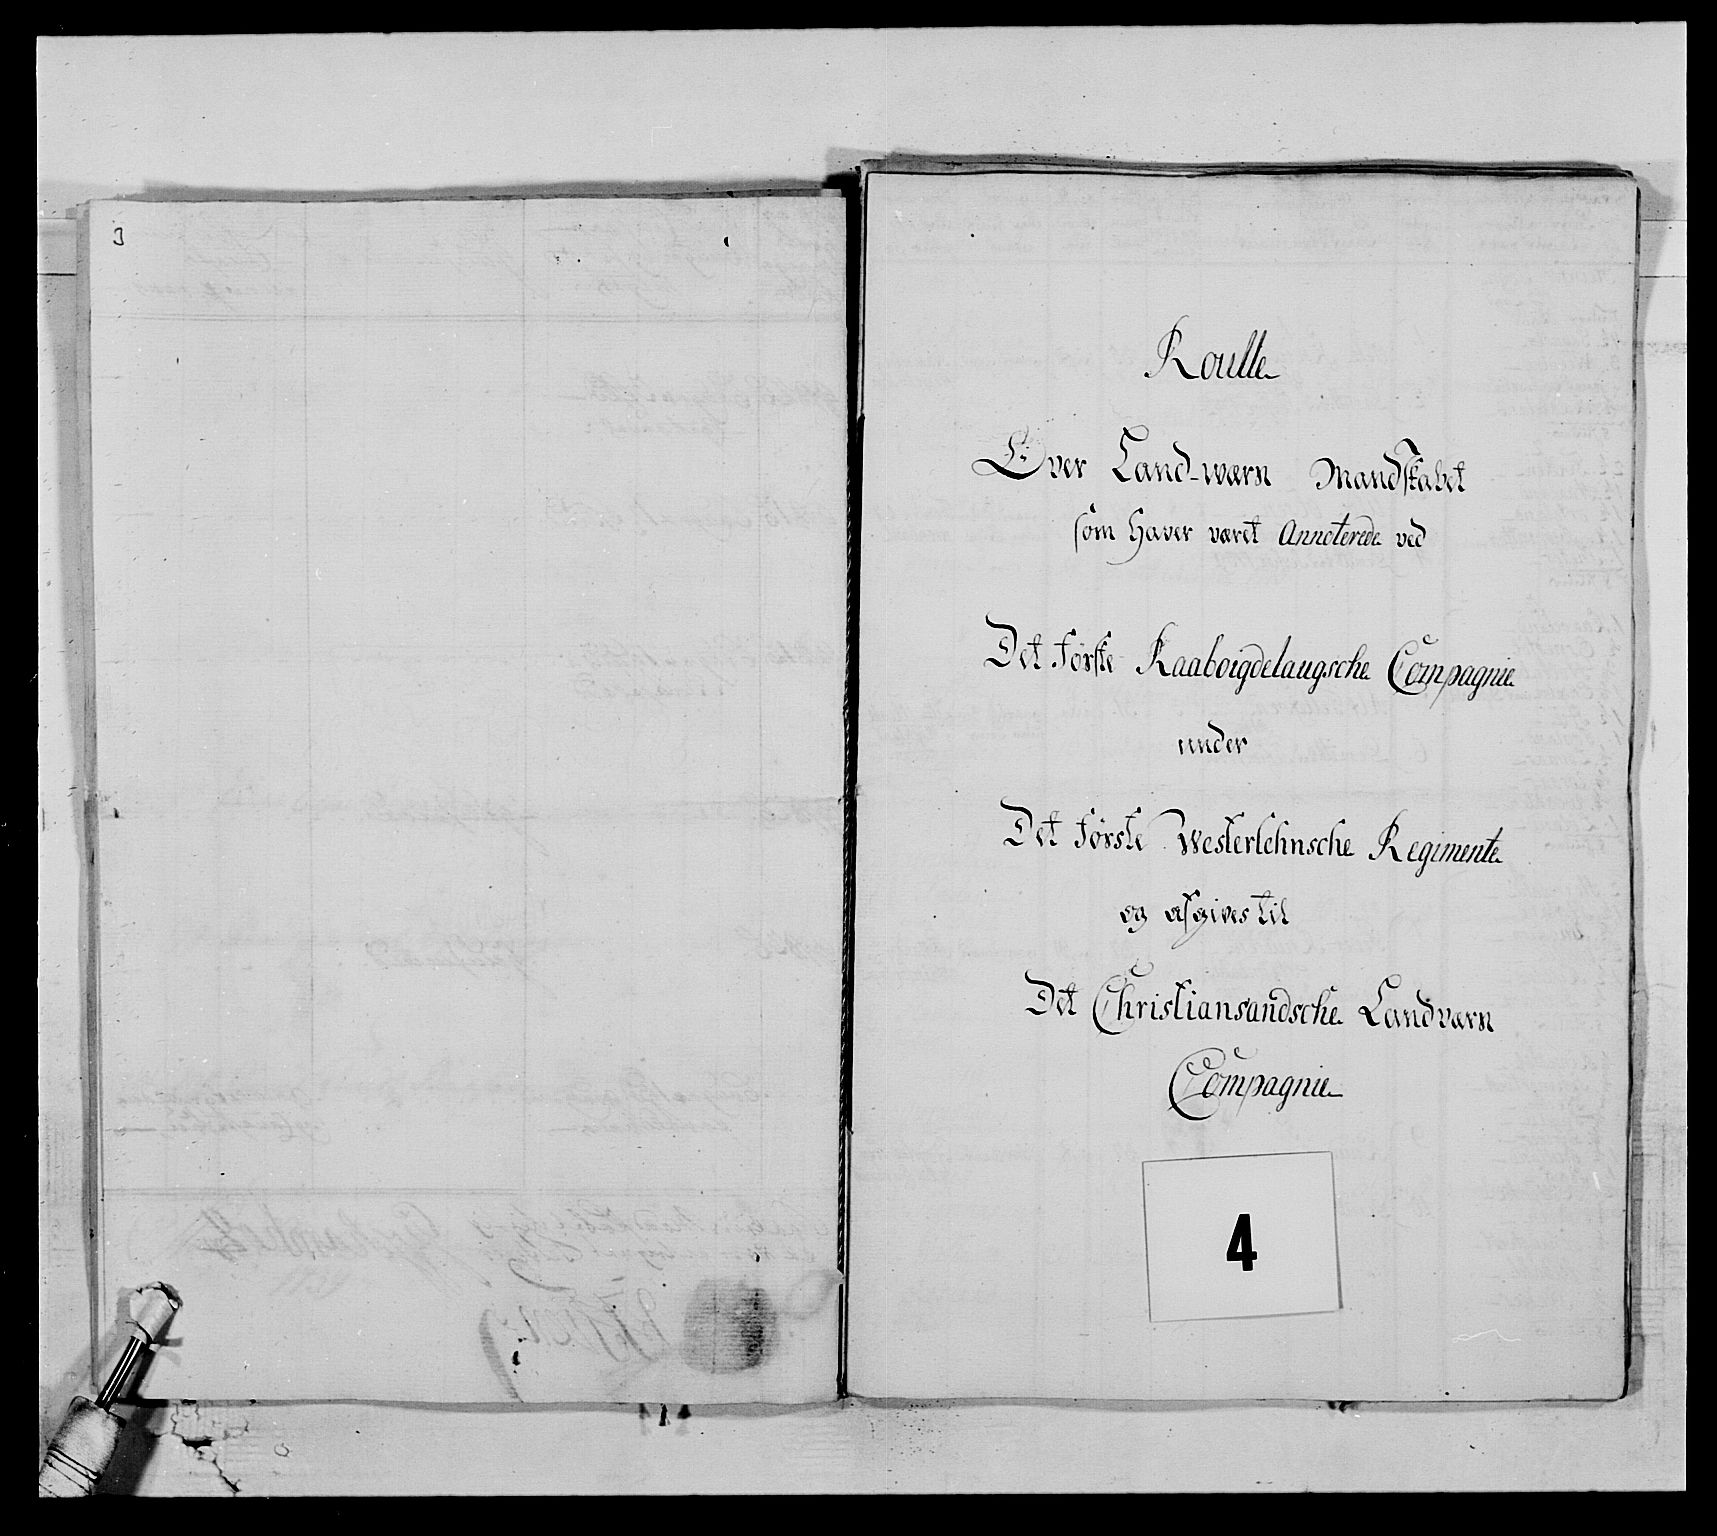 Roulle
Over Land-wærn Mandskabet
som haver været Annoterede ved
Det første Raaboigdelaugsche Compagnie
under
Det første Westerlehnsche Regimente
og afgives til
Det Christiansandsche Landværn
Compagnie
4